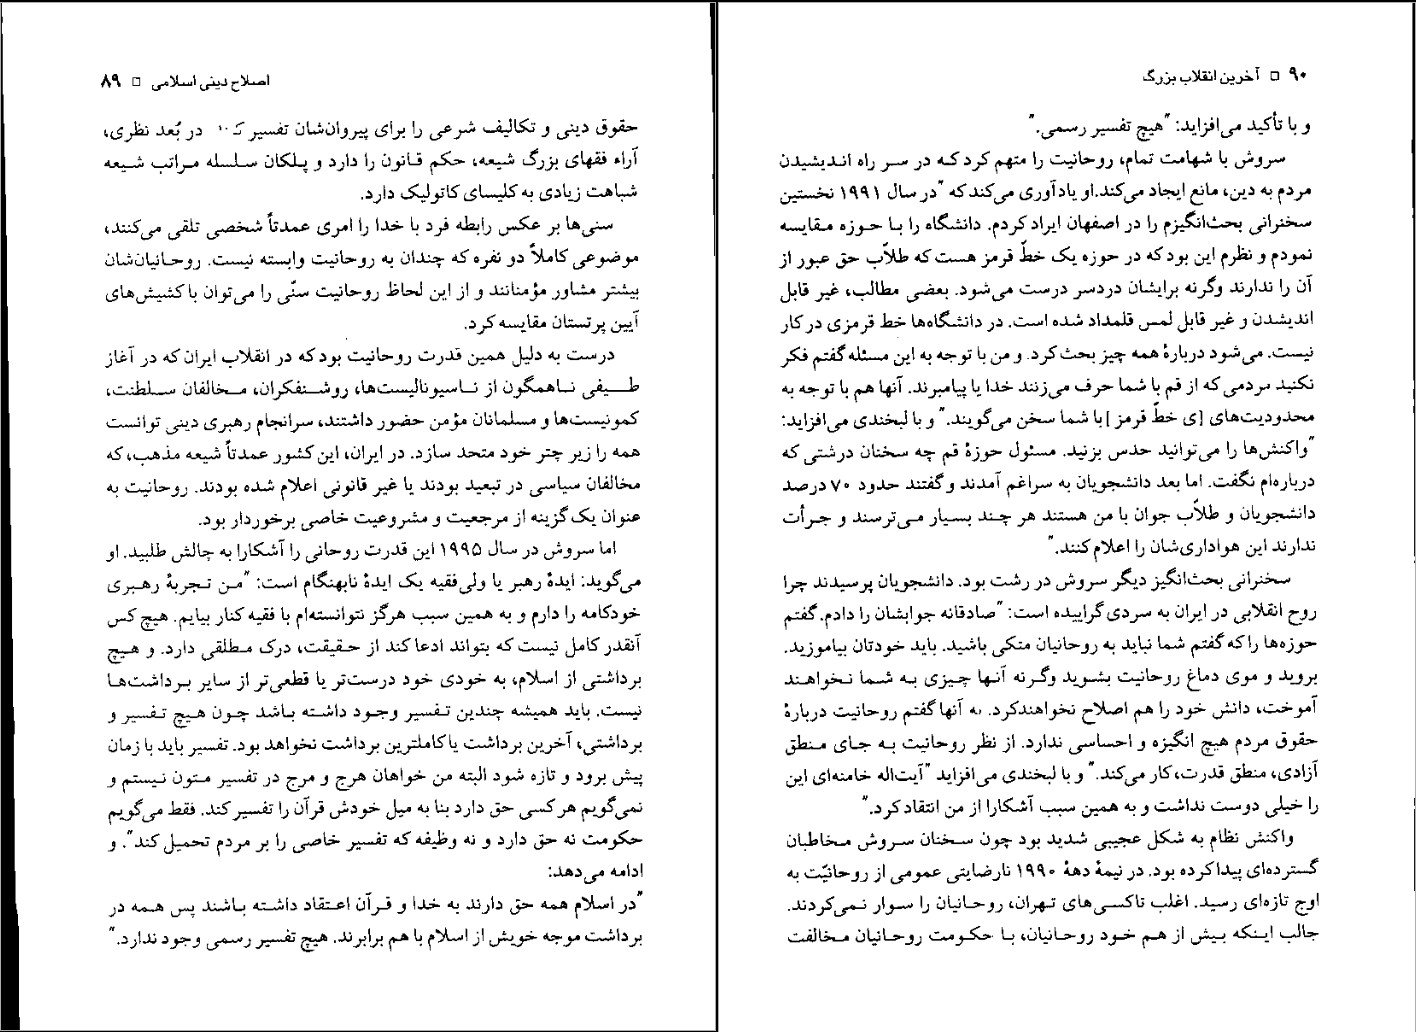 اصلاح دینی اسلامی □ ۸۹
حقوق دینی و تکالیف شرعی را برای پیروان‌شان تفسیر در بُعد نظری،
آراء فقهای بزرگ شیعه، حکم قانون را دارد و پلکان سلسله مراتب شیعه
شباهت زیادی به کلیسای کاتولیک دارد.
سنی‌ها بر عکس رابطه فرد با خدا را امری عمدتاً شخصی تلقی می‌کنند،
موضوعی کاملاً دو نفره که چندان به روحانیت وابسته نیست. روحانیان‌شان
بیشتر مشاور مؤمنانند و از این لحاظ روحانیت سنّی را می‌توان با کشیش‌های
آیین پرتستان مقایسه کرد.
درست به دلیل همین قدرت روحانیت بود که در انقلاب ایران که در آغاز
طیفی ناهمگون از ناسیونالیست‌ها، روشنفکران، مخالفان سلطنت،
کمونیست‌ها و مسلمانان مؤمن حضور داشتند، سرانجام رهبری دینی توانست
همه را زیر چتر خود متحد سازد. در ایران، این کشور عمدتاً شیعه مذهب، که
مخالفان سیاسی در تبعید بودند یا غیر قانونی اعلام شده بودند. روحانیت به
عنوان یک گزینه از مرجعیت و مشروعیت خاصی برخوردار بود.
اما سروش در سال ۱۹۹۵ این قدرت روحانی را آشکارا به چالش طلبید. او
می‌گوید: ایدهٔ رهبر یا ولی‌فقیه یک ایدهٔ نابهنگام است: "من تجربهٔ رهبری
خودکامه را دارم و به همین سبب هرگز نتوانسته‌ام با فقیه کنار بیایم. هیچ کس
آنقدر کامل نیست که بتواند ادعا کند از حقیقت، درک مطلقی دارد. و هیچ
برداشتی از اسلام، به خودی خود درست‌تر یا قطعی‌تر از سایر برداشت‌ها
نیست. باید همیشه چندین تفسیر وجود داشته باشد چون هیچ تفسیر و
برداشتی، آخرین برداشت یا کاملترین برداشت نخواهد بود. تفسیر باید با زمان
پیش برود و تازه شود البته من خواهان هرج و مرج در تفسیر متون نیستم و
نمی‌گویم هر کسی حق دارد بنا به میل خودش قرآن را تفسیر کند. فقط می‌گویم
حکومت نه حق دارد و نه وظیفه که تفسیر خاصی را بر مردم تحمیل کند". و
ادامه می‌دهد:
"در اسلام همه حق دارند به خدا و قرآن اعتقاد داشته باشند پس همه در
برداشت موجه خویش از اسلام با هم برابرند. هیچ تفسیر رسمی وجود ندارد."
۹۰ □ آخرین انقلاب بزرگ
و با تأکید می‌افزاید: "هیچ تفسیر رسمی."
سروش با شهامت تمام، روحانیت را متهم کرد که در سر راه اندیشیدن
مردم به دین، مانع ایجاد می‌کند. او یادآوری می‌کند که "در سال ۱۹۹۱ نخستین
سخنرانی بحث‌انگیزم را در اصفهان ایراد کردم. دانشگاه را با حوزه مقایسه
نمودم و نظرم این بود که در حوزه یک خطّ قرمز هست که طلاّب حق عبور از
آن را ندارند وگرنه برایشان دردسر درست می‌شود. بعضی مطالب، غیر قابل
اندیشدن و غیر قابل لمس قلمداد شده است. در دانشگاه‌ها خط قرمزی در کار
نیست. می‌شود دربارهٔ همه چیز بحث کرد. و من با توجه به این مسئله گفتم فکر
نکنید مردمی که از قم با شما حرف می‌زنند خدا یا پیامبرند. آنها هم با توجه به
محدودیت‌های [ی خطّ قرمز] با شما سخن می‌گویند." و با لبخندی می‌افزاید:
"واکنش‌ها را می‌توانید حدس بزنید. مسئول حوزهٔ قم چه سخنان درشتی که
درباره‌ام نگفت. اما بعد دانشجویان به سراغم آمدند و گفتند حدود ۷۰ درصد
دانشجویان و طلاّب جوان با من هستند هر چند بسیار می‌ترسند و جرأت
ندارند این هواداری‌شان را اعلام کنند."
سخنرانی بحث‌انگیز دیگر سروش در رشت بود. دانشجویان پرسیدند چرا
روح انقلابی در ایران به سردی گراییده است: "صادقانه جوابشان را دادم. گفتم
حوزه‌ها را که گفتم شما نباید به روحانیان متکی باشید. باید خودتان بیاموزید.
بروید و موی دماغ روحانیت بشوید وگرنه آنها چیزی به شما نخواهند
آموخت، دانش خود را هم اصلاح نخواهند کرد. به آنها گفتم روحانیت دربارهٔ
حقوق مردم هیچ انگیزه و احساسی ندارد. از نظر روحانیت به جای منطق
آزادی، منطق قدرت، کار می‌کند." و با لبخندی می‌افزاید "آیت‌اله خامنه‌ای این
را خیلی دوست نداشت و به همین سبب آشکارا از من انتقاد کرد."
واکنش نظام به شکل عجیبی شدید بود چون سخنان سروش مخاطبان
گسترده‌ای پیدا کرده بود. در نیمهٔ دههٔ ۱۹۹۰ نارضایتی عمومی از روحانیّت به
اوج تازه‌ای رسید. اغلب تاکسی‌های تهران، روحانیان را سوار نمی‌کردند.
جالب اینکه بیش از هم خود روحانیان، با حکومت روحانیان مخالفت